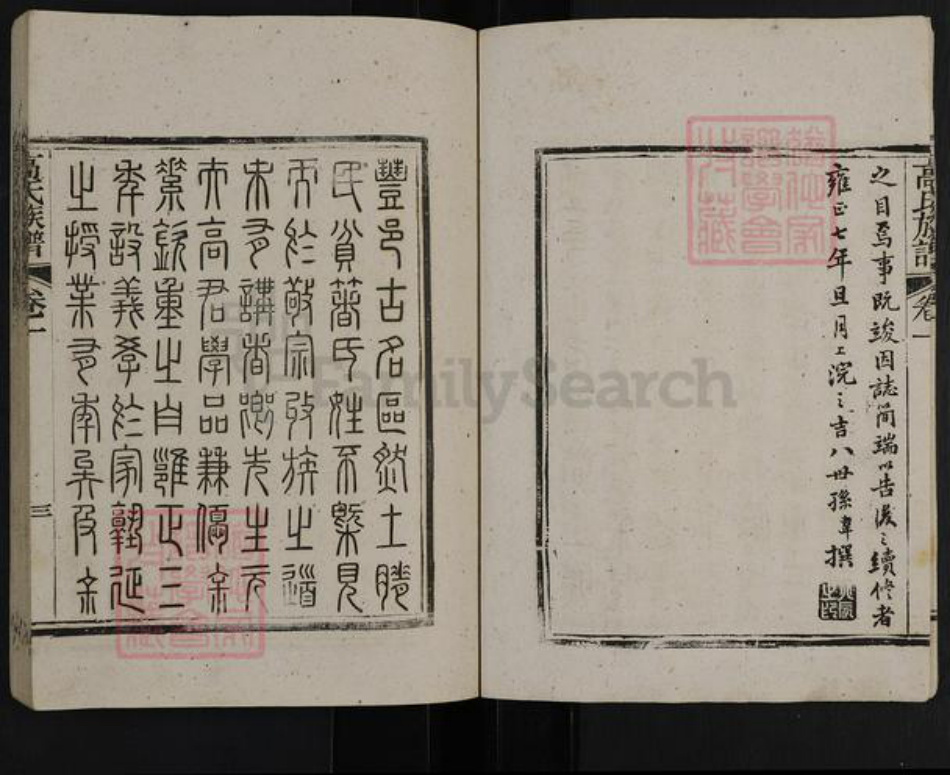 高氏族譜 卷一
之目焉事既竣因誌簡端以告後之續修者
雍正七年且月上浣之吉八世孫韋撰
豐邑古名區然土
民貧著氏姓不槩見
而於敬宗收族之道
未有講者鄉先生元
大高君學品兼優余
素欽重之自雍正三
年設義學於家塾延
之授業有年矣及余
高氏族譜 卷一 三
FamilySearch